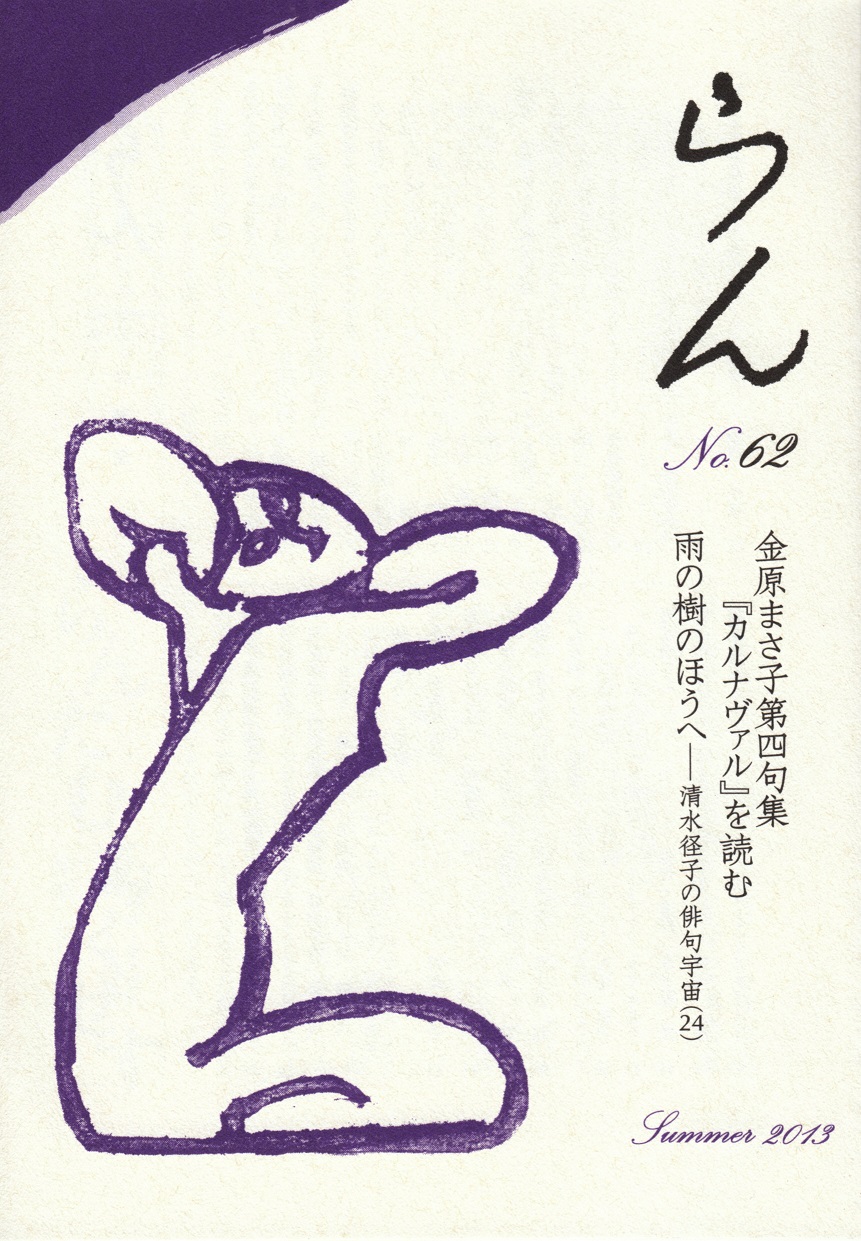 らん
No. 62
金原まさ子第四句集
『カルナヴァル』を読む
雨の樹のほうへ――清水径子の俳句宇宙(24)
Summer 2013